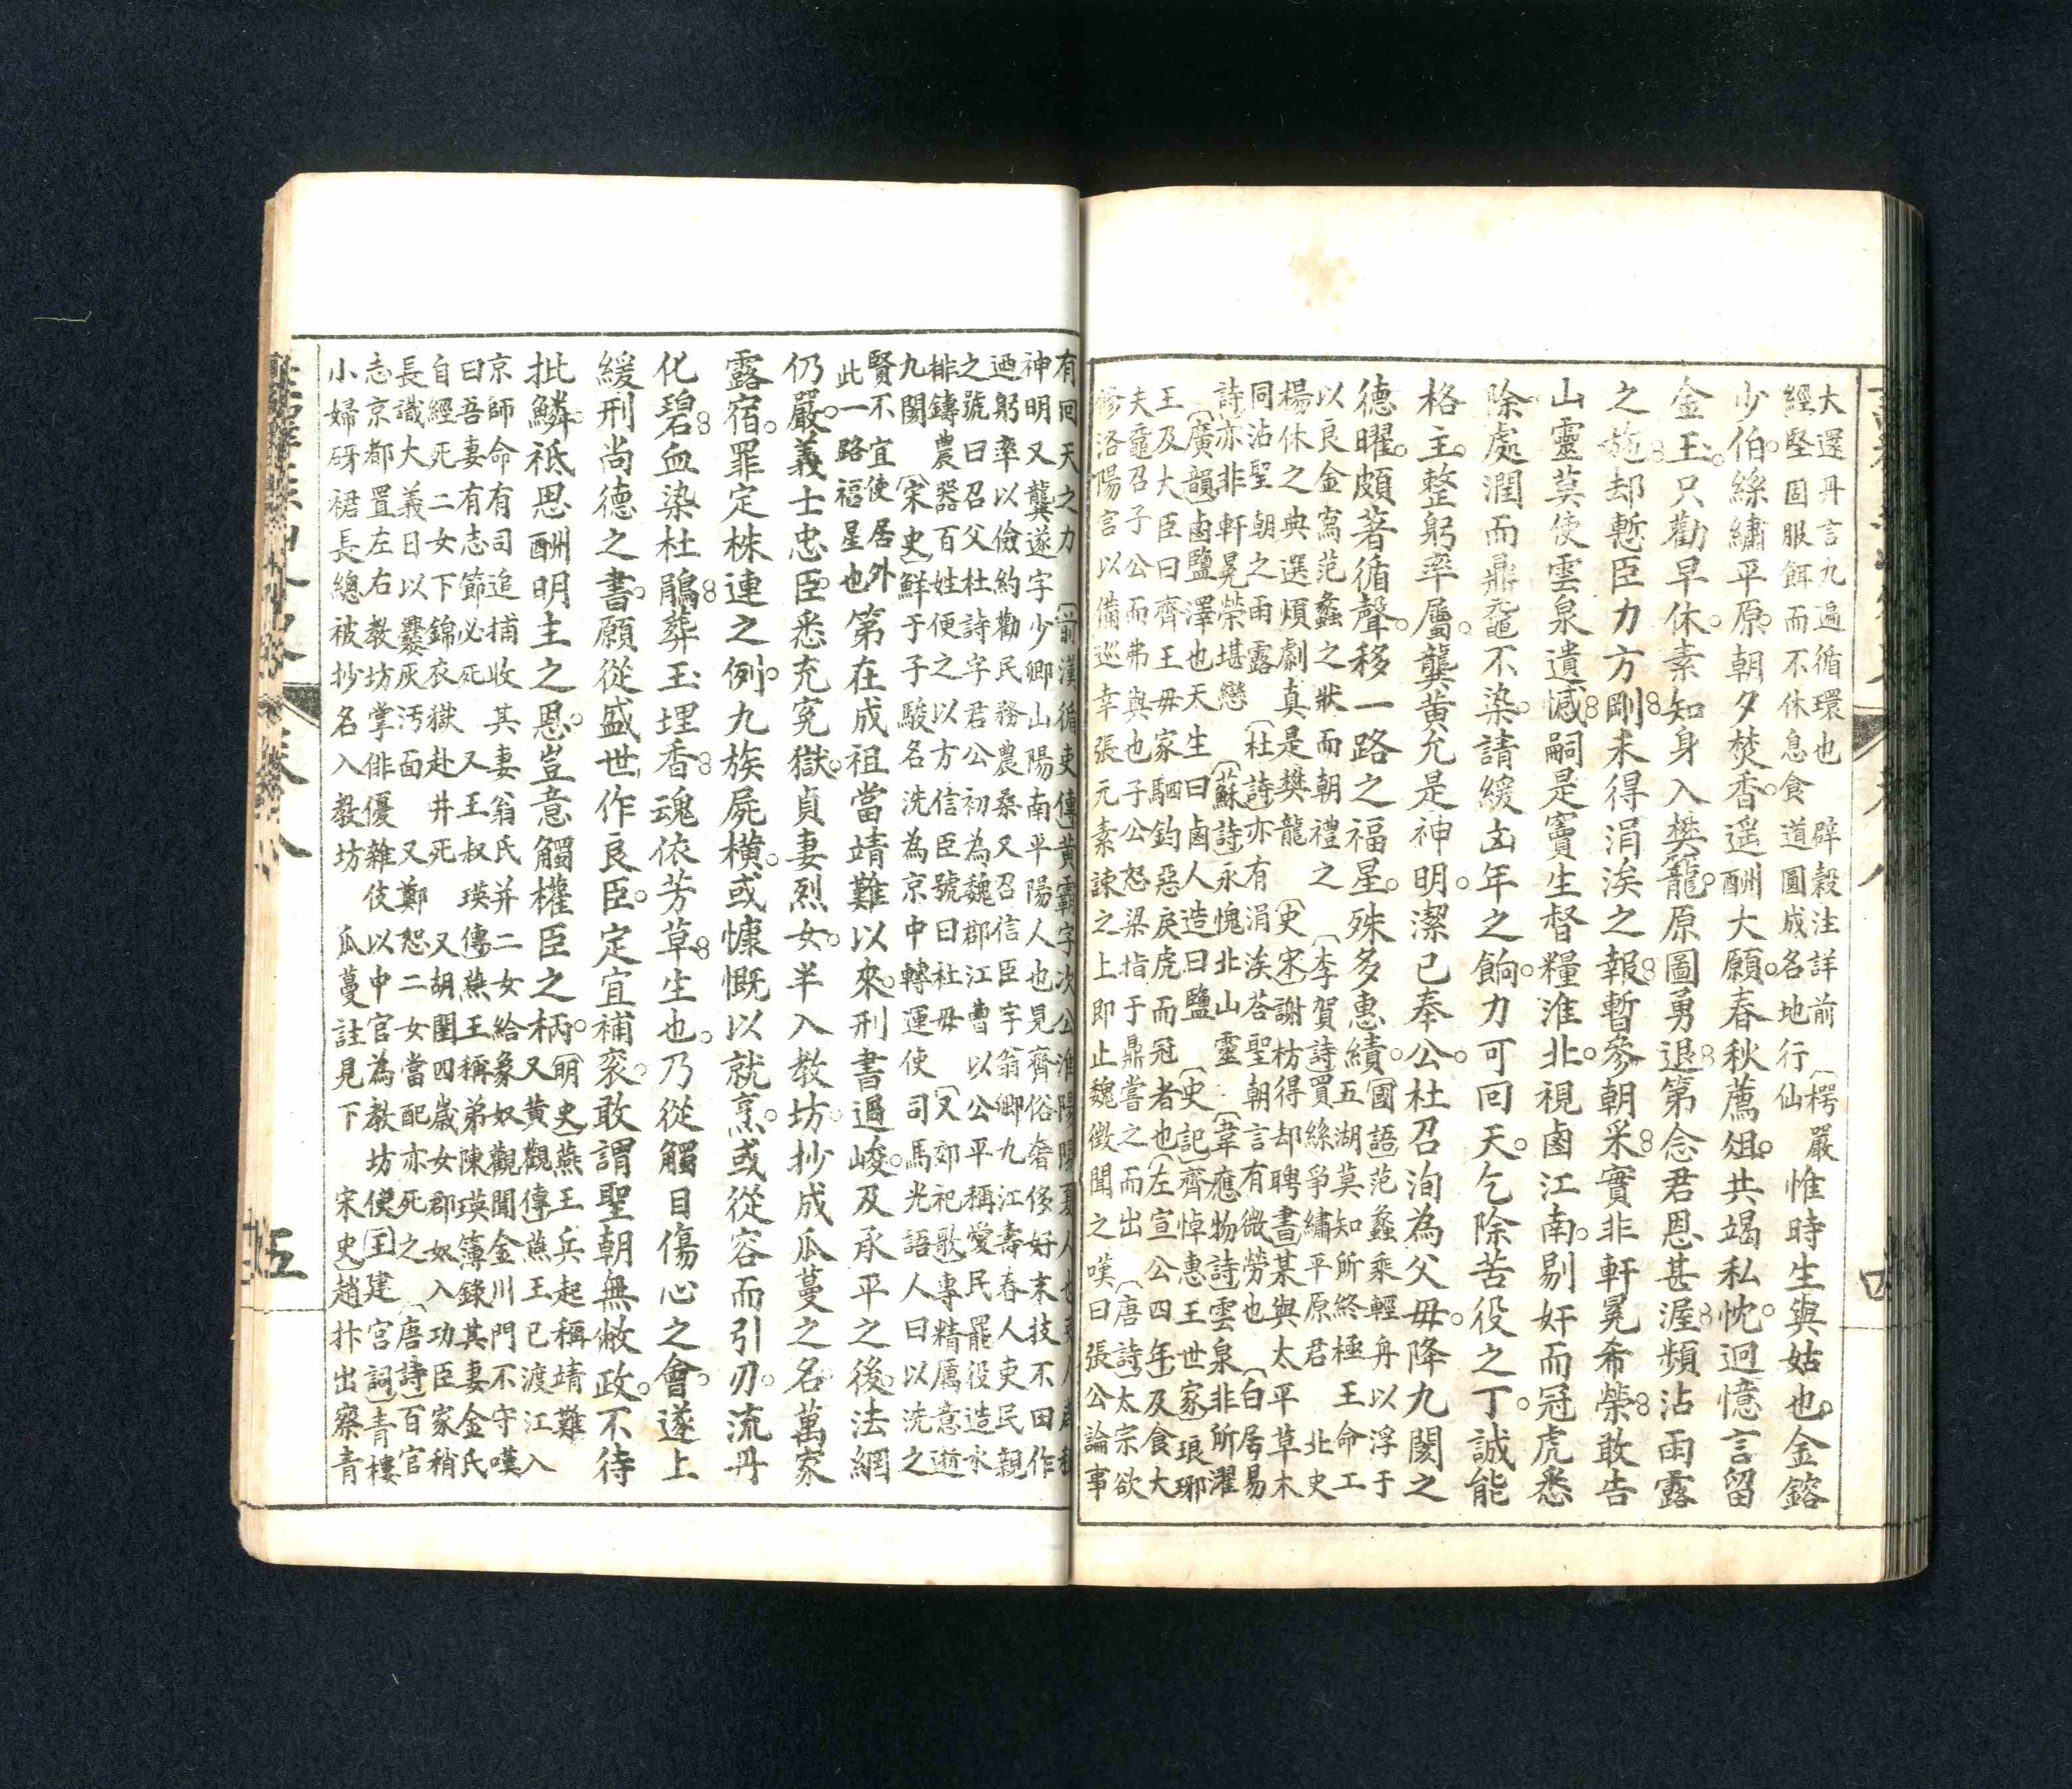 大還丹言九遍循環也 辟穀注詳前 〔楞嚴
經堅固服餌而不休息食道圓成名地行仙
惟時生與姑也。金鎔
少伯。絲繡平原。朝夕焚香。遥酬大願。春秋薦俎。共竭私忱。迴憶言留
金玉。只勸早休。素知身入樊籠。原圖勇退。第念君恩甚渥。頻沾雨露
之施。却慙臣力方剛。未得涓涘之報。暫參朝采。實非軒冕希榮。敢告
山靈莫使雲泉遺憾。嗣是竇生督糧淮北。視鹵江南。剔奸而冠虎悉
除。處潤而鼎黿不染。請緩凶年之餉。力可回天。乞除苦役之丁。誠能
格主。整躬率屬。龔黃允是神明。潔己奉公。杜召洵為父母。降九閡之
德曜。頗著循聲。移一路之福星。殊多惠績。
〔國語〕范蠡乘輕舟以浮于
五湖莫知所終極 王命工
以良金寫范蠡之狀而朝禮之 〔李賀詩〕買絲爭繡平原君 北史
楊休之典選煩劇真是樊龍 〔史宋〕謝枋得却聘書某與太平草木
同沾聖朝之雨露 〔杜詩〕亦有涓涘荅聖朝言有微勞也 〔白居易
詩〕亦非軒冕榮堪戀 〔蘇詩〕永愧北山靈 〔韋應物詩〕雲泉非所濯
〔廣韻〕鹵鹽澤也天生曰鹵人造曰鹽 〔史記〕齊悼惠王世家琅琊
王及大臣曰齊王母家駟鈞惡戾虎而冠者也〔左宣公四年〕及食大
夫黿召子公而弗與也子公怒梁指于鼎嘗之而出 〔唐詩〕太宗欲
修洛陽言以備巡幸張元素諫之上即止魏徵聞之嘆曰張公論事
四
有回天之力 〔前漢循吏傳〕黃霸字次公淮陽陽夏人也
神明又龔遂字少卿山陽南平陽人也見齊俗奢侈好末技不田作
迺躬率以儉約勸民務農桑又召信臣字翁卿九江壽春人吏民親
之號曰召父杜詩字君公初為魏郡江曹以公平稱愛民罷役造水
排鑄農器百姓便之以方信臣號曰杜母 〔又郊祀歌〕專精厲意逝
九閡 〔宋史〕鮮于子駿名洗為京中轉運使 司馬光語人曰以洗之
賢不宜使居外
此一路福星也
第在成祖當靖難以來。刑書過峻。及承平之後。法網
仍嚴。義士忠臣。悉充寃獄。貞妻烈女。半入教坊。抄成瓜蔓之名。萬家
露宿。罪定株連之例。九族屍橫。或慷慨以就烹。或從容而引刃。流丹
化碧。血染杜鵑。葬玉埋香。魂依芳草。生也。乃從觸目傷心之會。遂上
緩刑尚德之書。願從盛世作良臣。定宜補衮。敢謂聖朝無敝政。不待
批鱗。祗思酬明主之恩。豈意觸權臣之柄。
〔明史〕燕王兵起稱靖難
又黃觀傳〕燕王已渡江入
京師命有司追捕收其妻翁氏并二女給象奴觀聞金川門不守嘆
曰吾妻有志節必死 又王叔瑛傳〕燕王稱弟陳瑛簿錄其妻金氏
自經死二女下錦衣獄赴井死 又胡閏四歲女郡奴入功臣家稍
長識大義日以爨灰汚面 又鄭恕二女當配亦死之 〔唐詩〕百官
志京都置左右教坊掌俳優雜伎以中官為教坊使〔王建宮詞〕青樓
小婦砑裙長總被抄名入教坊 瓜蔓註見下 宋史〕趙抃出察青
卷八
五